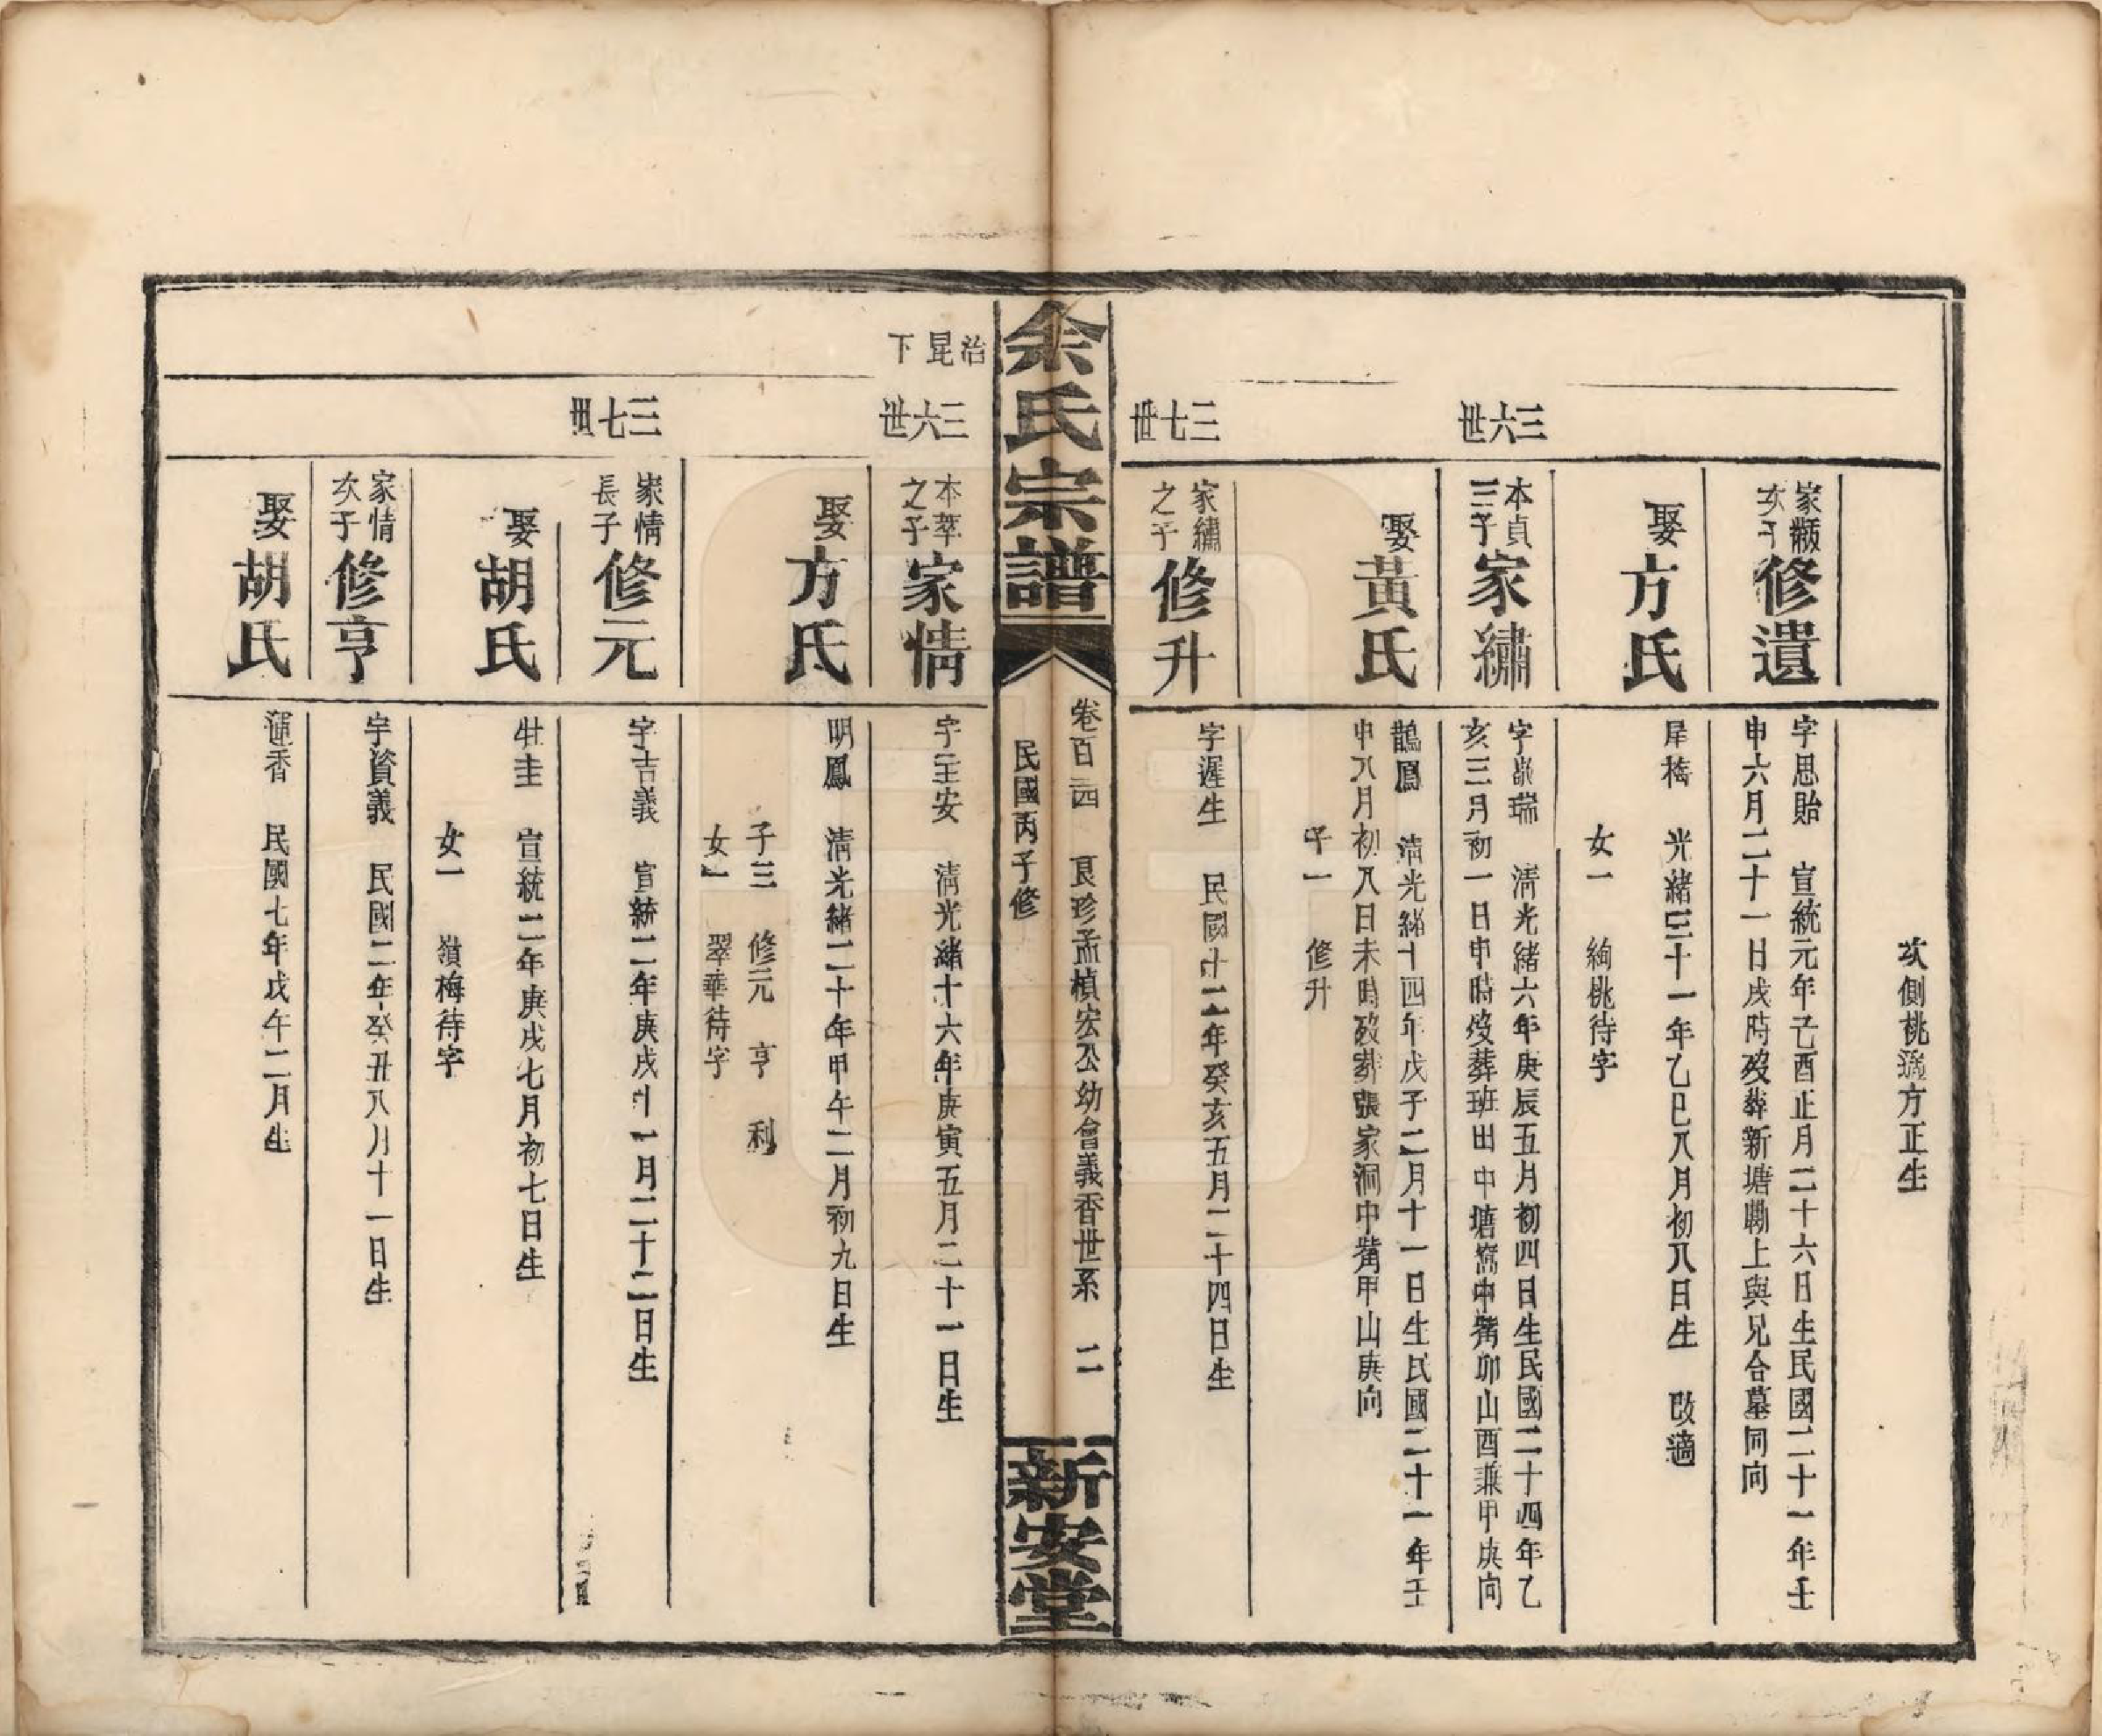 次側桃適方正生
家黼次子
修遺
字思貽　宣統元年己酉正月二十六日生民國二十一年壬
申六月二十一日戌時歿葬新塘墈上與兄合墓同向
娶方氏
犀梅　光緒三十一年乙巳八月初八日生　改適
女一　絢桃待字
三六世
本貞三子
家繡
字嵗瑞　清光緒六年庚辰五月初四日生民國二十四年乙
亥三月初一日申時歿葬班田中塘窩中嘴卯山酉兼甲庚向
娶黃氏
鵲鳳　清光緒十四年戊子二月十一日生民國二十一年壬
申八月初八日未時歿葬張家洞中嘴甲山庚向
子一　修升
三七世
家繡之子
修升
字遲生　民國十二年癸亥五月二十四日生
余氏宗譜
卷百四　良珍孟楨宏公幼會義香世系　二
民國丙子修
新安堂
治昆下
三六世
本萃之子
家情
字至安　清光緒十六年庚寅五月二十一日生
娶方氏
明鳳　清光緒二十年甲午二月初九日生
子三　修元　亨　利
女一　翠華待字
三七世
家情長子
修元
字吉義　宣統二年庚戌十一月二十二日生
娶胡氏
牡圭　宣統二年庚戌七月初七日生
女一　嶺梅待字
家情次子
修亨
字資義　民國二年癸丑八月十一日生
娶胡氏
運香　民國七年戊午二月生